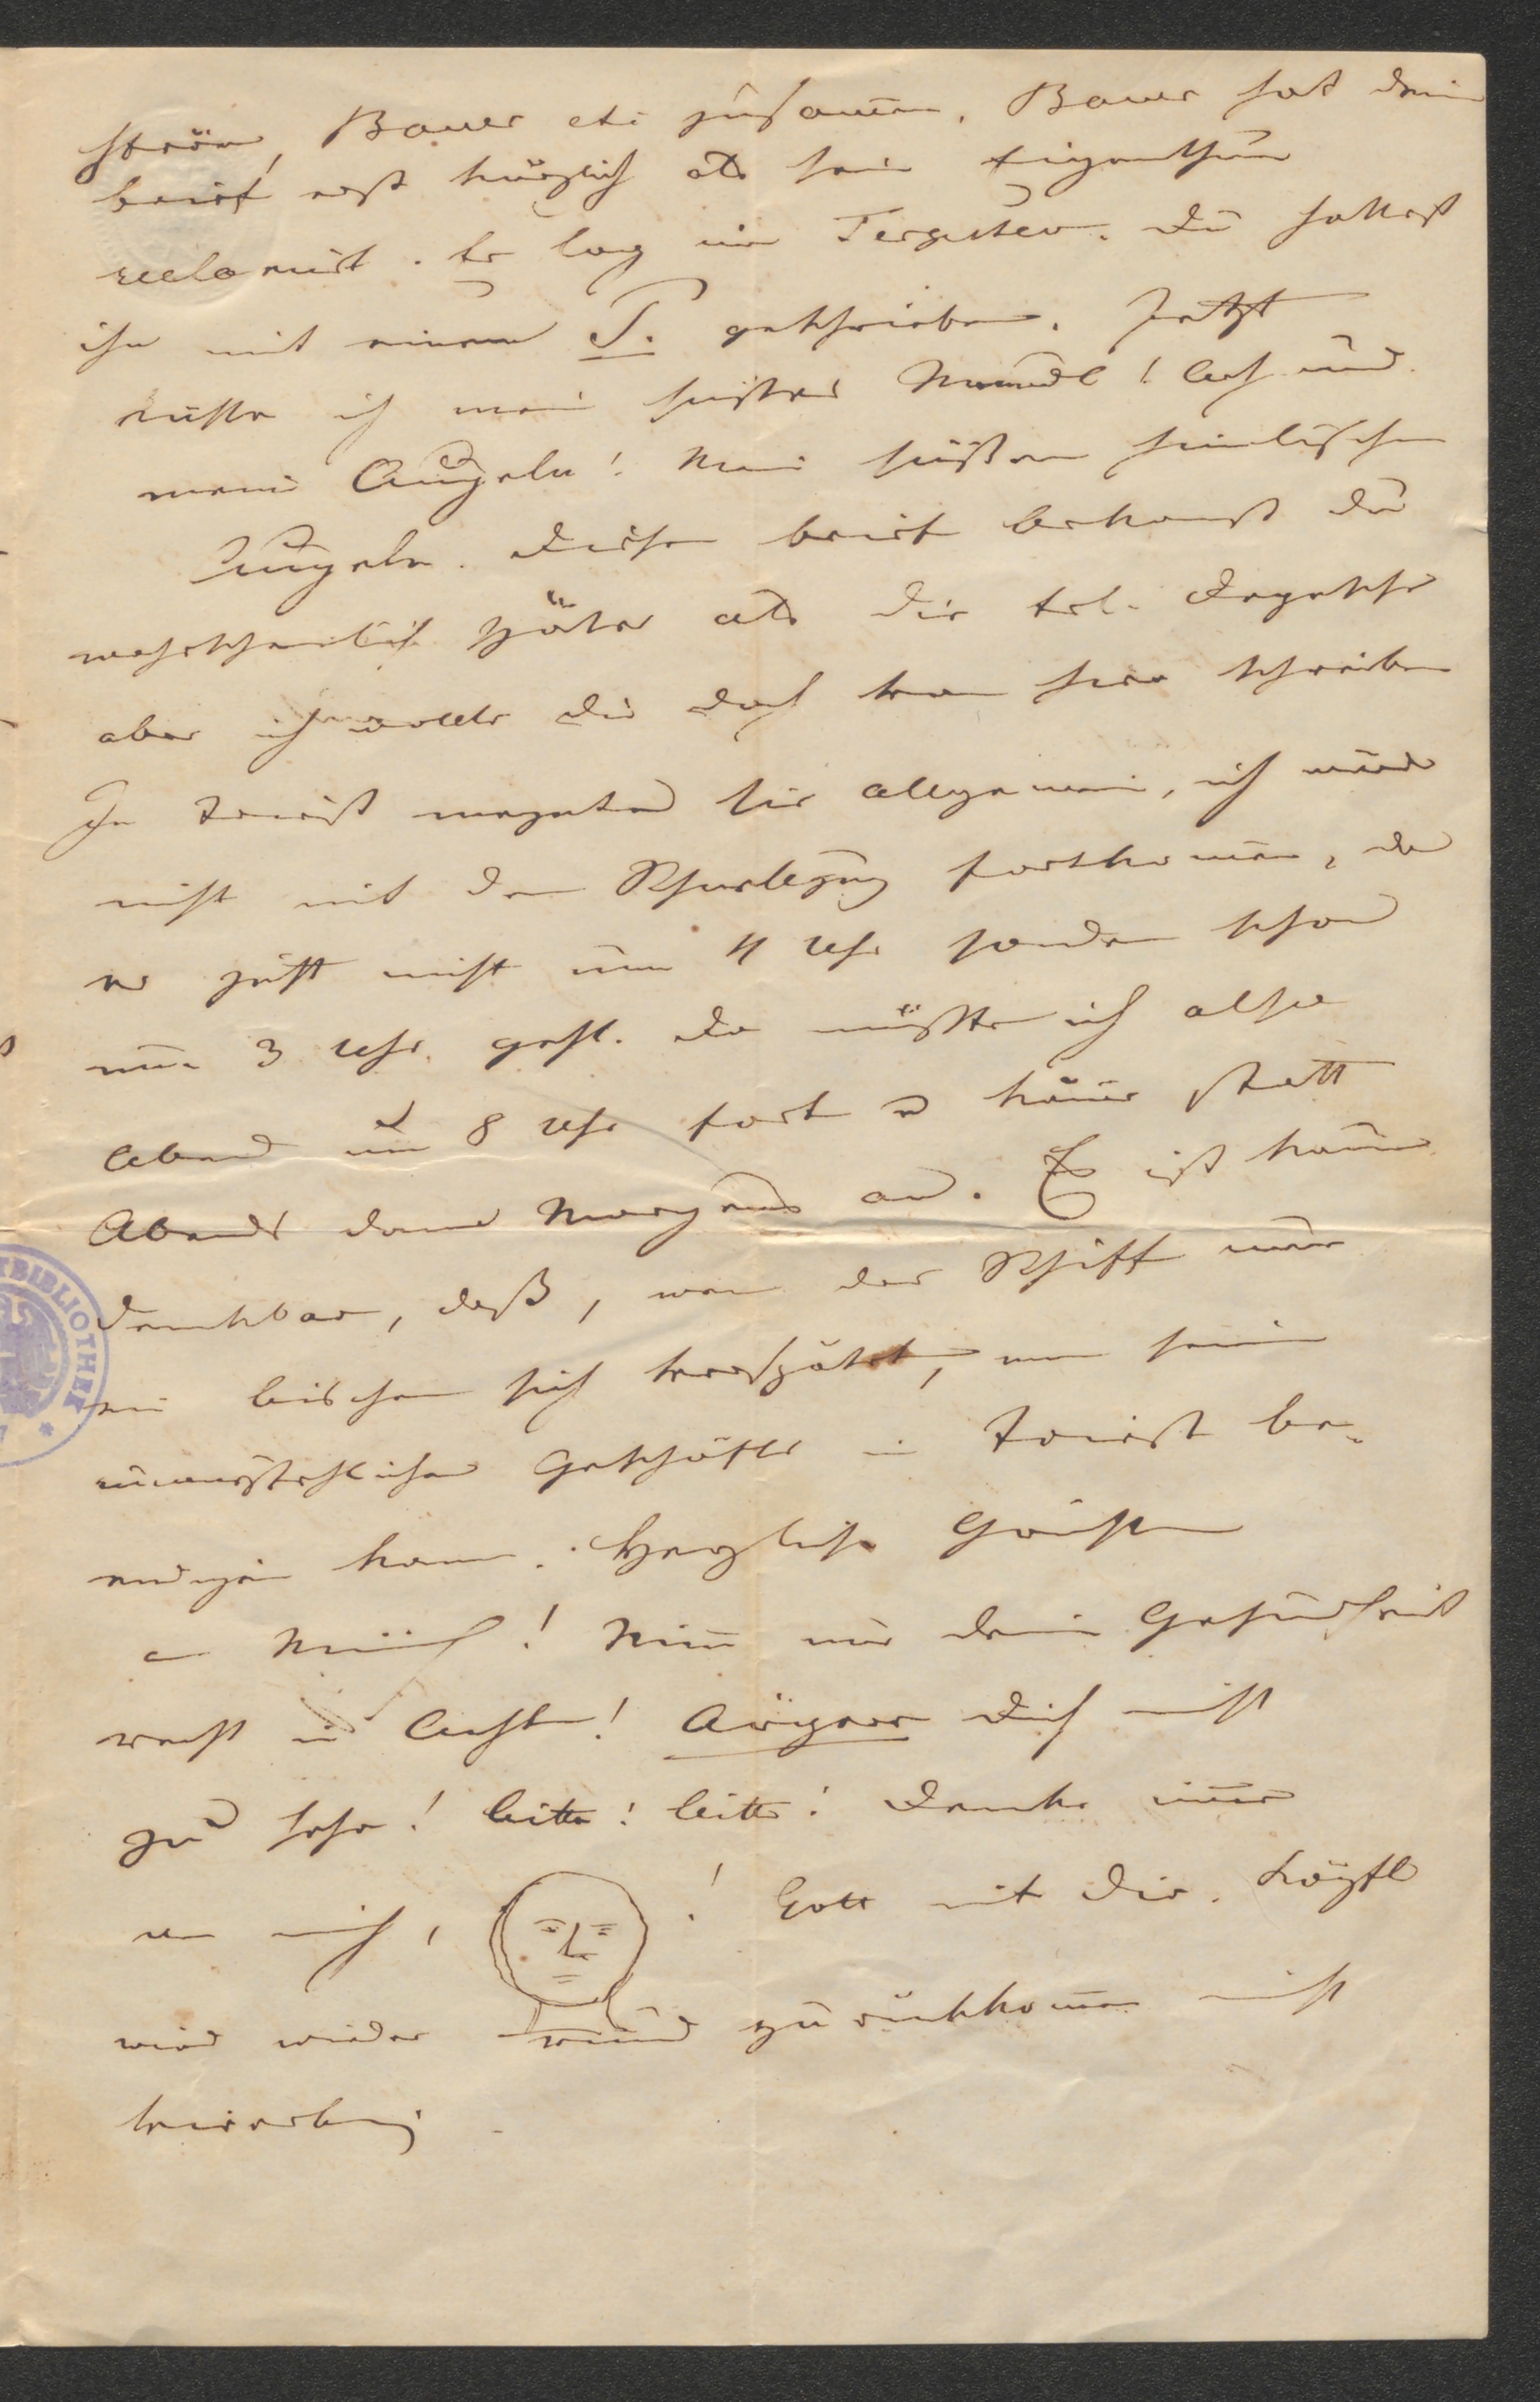 Ström, Bauer etc zusam̄en. Bauer hat den
brief erst kürzlich als sein Eigenthum
reclamirt. Er lag im Tergesteo. Du hattest
ihn mit einem P. geschrieben. Jetzt
küsse ich mein süßes Mundl! Ach und
meine Äugeln! Mein süßen himlischen
Äugeln. Diesen brief bekomst Du
wahrscheinlich später als die tel. Depesche
aber ich wollte Dir doch von hier schreiben
In Triest megeted sie allgemein, ich würde
nicht mit dem Schnellzug fortkom̄en, da
er jetzt nicht um 4 Uhr sondern schon
um 3 Uhr geht. Da müßte ich also
Abend um 8 Uhr fort u käme statt
Abends dann Morgens an. Es ist kaum
denkbar, daß, wen das Schiff nur
ein bischen sich verspätet, man seine
unausstehlichen Geschäfte in Triest be-
endigen kann. Herzliche Grüße
an Münch! Nim̄ nur dein Gesundheit
recht in Acht! Ärgere dich nicht
zu sehr! bitte! bitte! Denke im̄er
an mich, ! Gott mit Dir. Köpfl
wird wieder rund zurückkom̄en nicht